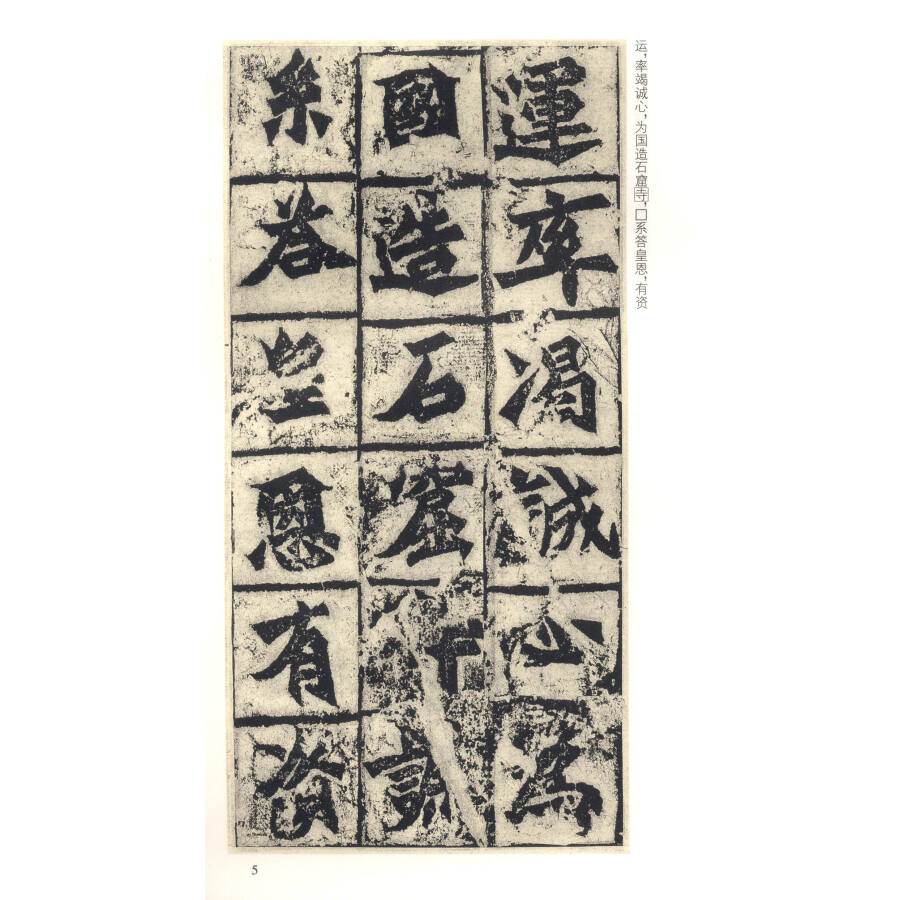 运，率竭诚心，为国造石窟寺，□系答皇恩，有资
運率渴誠心為
國造石窟
系荅皇恩有資
5